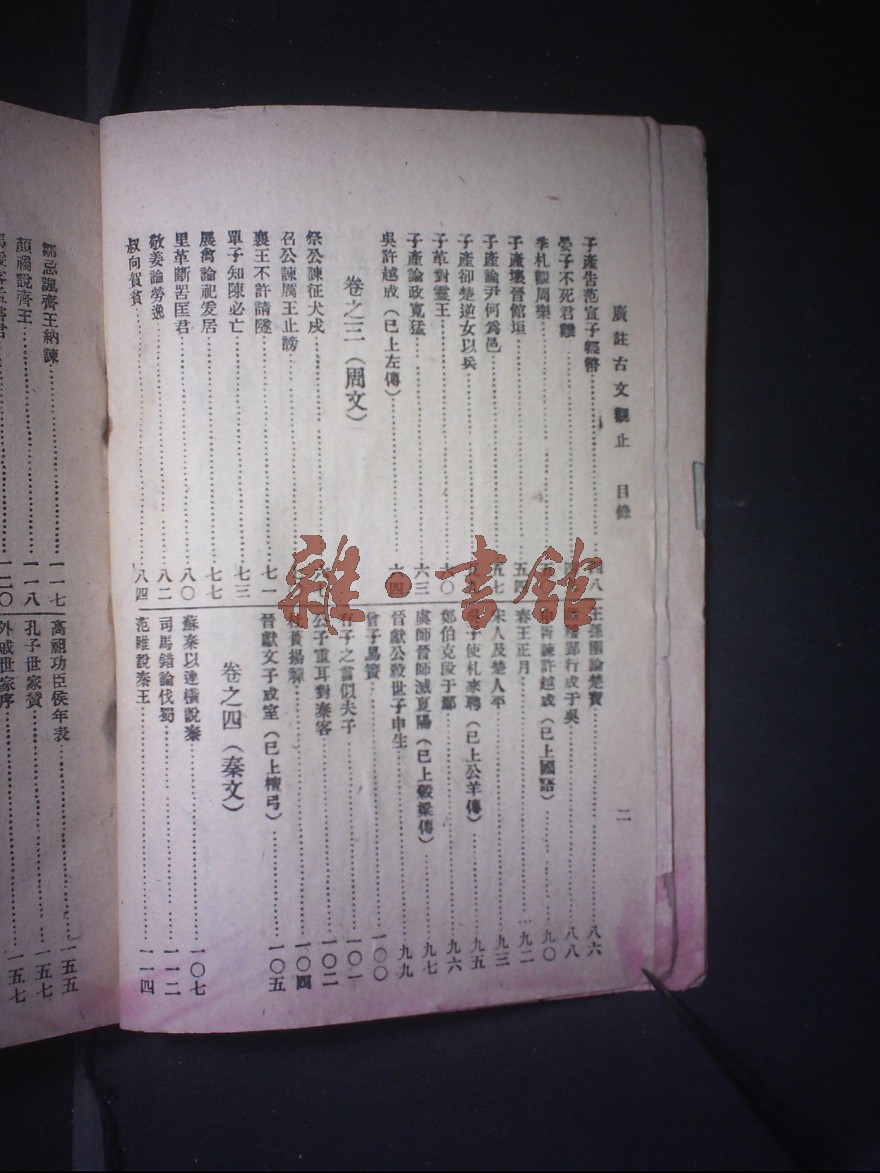 廣註古文觀止 目錄 二
子產告范宣子輕幣 四八
晏子不死君難
季札觀周樂
子產壞晉館垣 五四
子產論尹何為邑 五七
子產卻楚逆女以兵
子革對靈王
子產論政寬猛 六三
吳許越成（已上左傳） 六四
卷之三（周文）
祭公諫征犬戎
召公諫厲王止謗
襄王不許請隧 七一
單子知陳必亡 七三
展禽論祀爰居 七七
里革斷罟匡君 八〇
敬姜論勞逸 八二
叔向賀貧 八四
王孫圉論楚寶 八六
行成于吳 八八
諫許越成（已上國語） 九〇
春王正月 九二
宋人及楚人平 九三
子使札來聘（已上公羊傳） 九五
鄭伯克段于鄢 九六
虞師晉師滅夏陽（已上穀梁傳） 九七
晉獻公殺世子申生 九九
曾子易簀 一〇〇
有子之言似夫子 一〇一
公子重耳對秦客 一〇二
杜蕢揚觶 一〇四
晉獻文子成室（已上檀弓） 一〇五
卷之四（秦文）
蘇秦以連橫說秦 一〇七
司馬錯論伐蜀 一一二
范雎說秦王 一一四
鄒忌諷齊王納諫 一一七
顏斶說齊王 一一八
馮煖客孟嘗君 一二〇
高祖功臣侯年表 一五五
孔子世家贊 一五七
外戚世家序 一五七
雜·書館